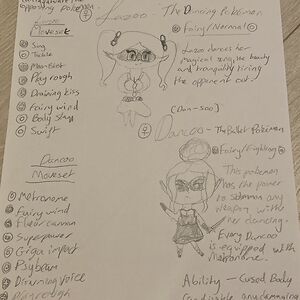 opposing Pokemon
Lazoo - The Dancing Pokémon
Fairy/Normal
Lazoo
Moveset
Sing
Tackle
Moonblast
Play rough
Draining kiss
Fairy wind
Body Slam
Swift
Lazoo dances her
magical ring, Her beauty
and tranquility tiring
the opponent out.
[Dan-soo]
Dancoo - The Ballet Pokémon
Fairy/Fighting
Dancoo
Moveset
Metronome
Fairy wind
Fleur cannon
Superpower
Giga impact
Psybeam
Disarming Voice
Play rough
This pokemon
has the power
to summon any
weapon with
her dancing.
Every Dancoo
is equipped with
Metronome.
Ability - Cursed Body